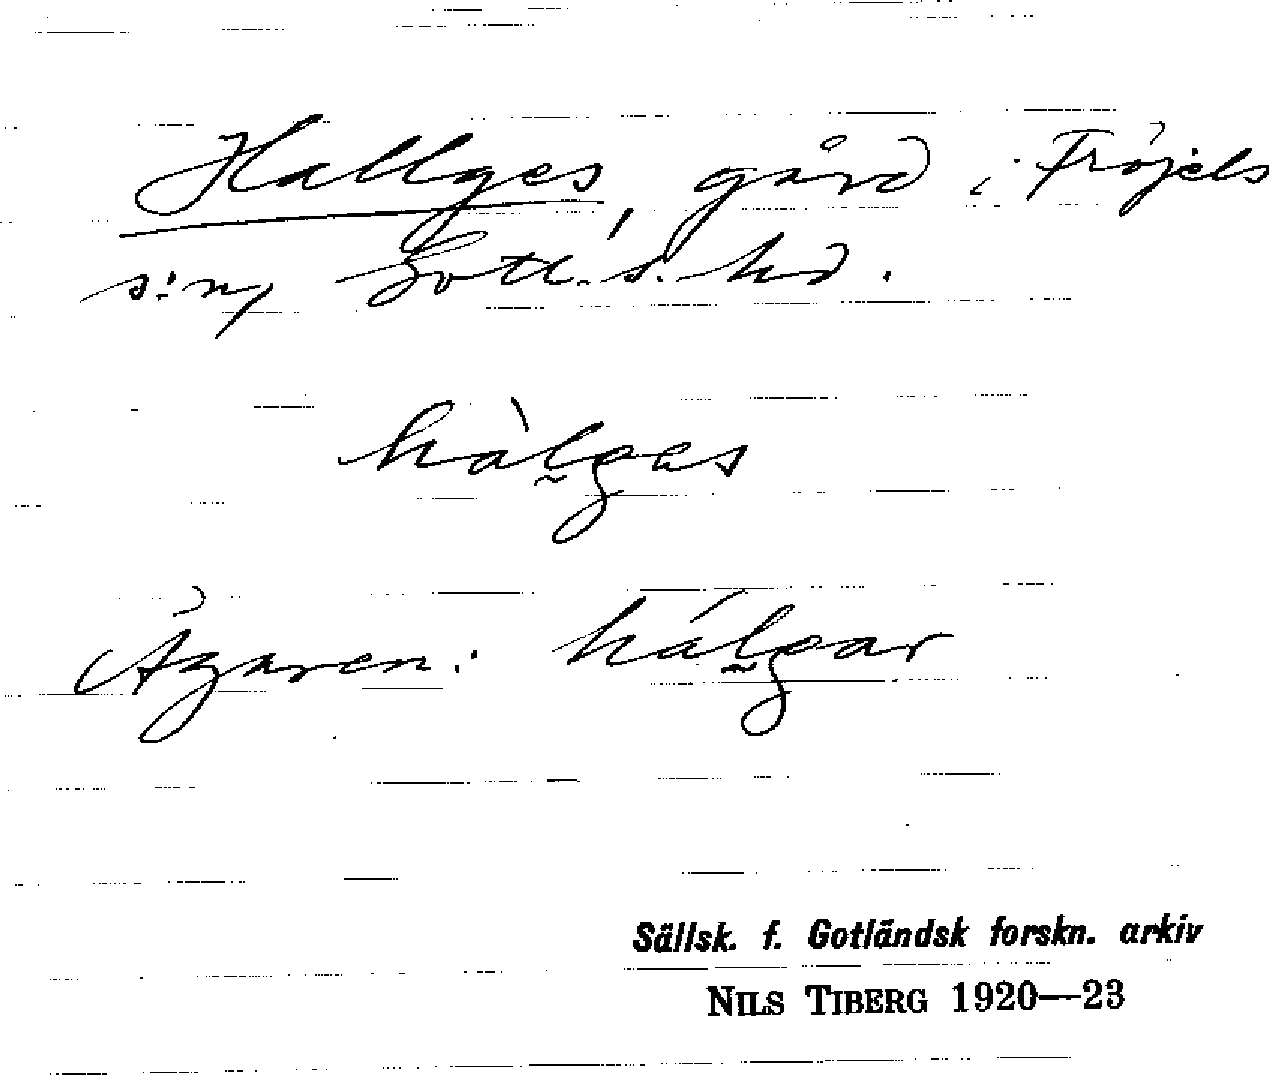 Hallges, gård i Fröjels
s:n, Gotl:s. hd.
hàl̰gas
Ägaren: hál̰gar
Sällsk. f. Gotländsk forskn. arkiv
NILS TIBERG 1920—23